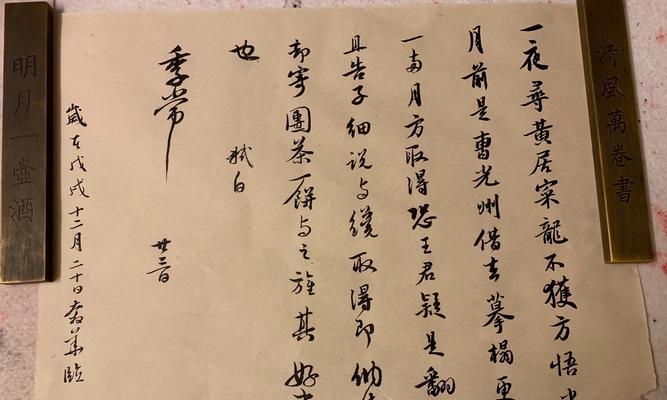 清風萬卷書
一夜尋黃居寀龍不獲方悟
月前是曹光州借去摹搨更
一兩月方取得恐王君疑是翻
且告子細说与纔取得即納
却寄團茶一餅与之旌其好
也
軾白
季常
廿三日
歲在戊戌十二月二十日華臨
明月一壺酒